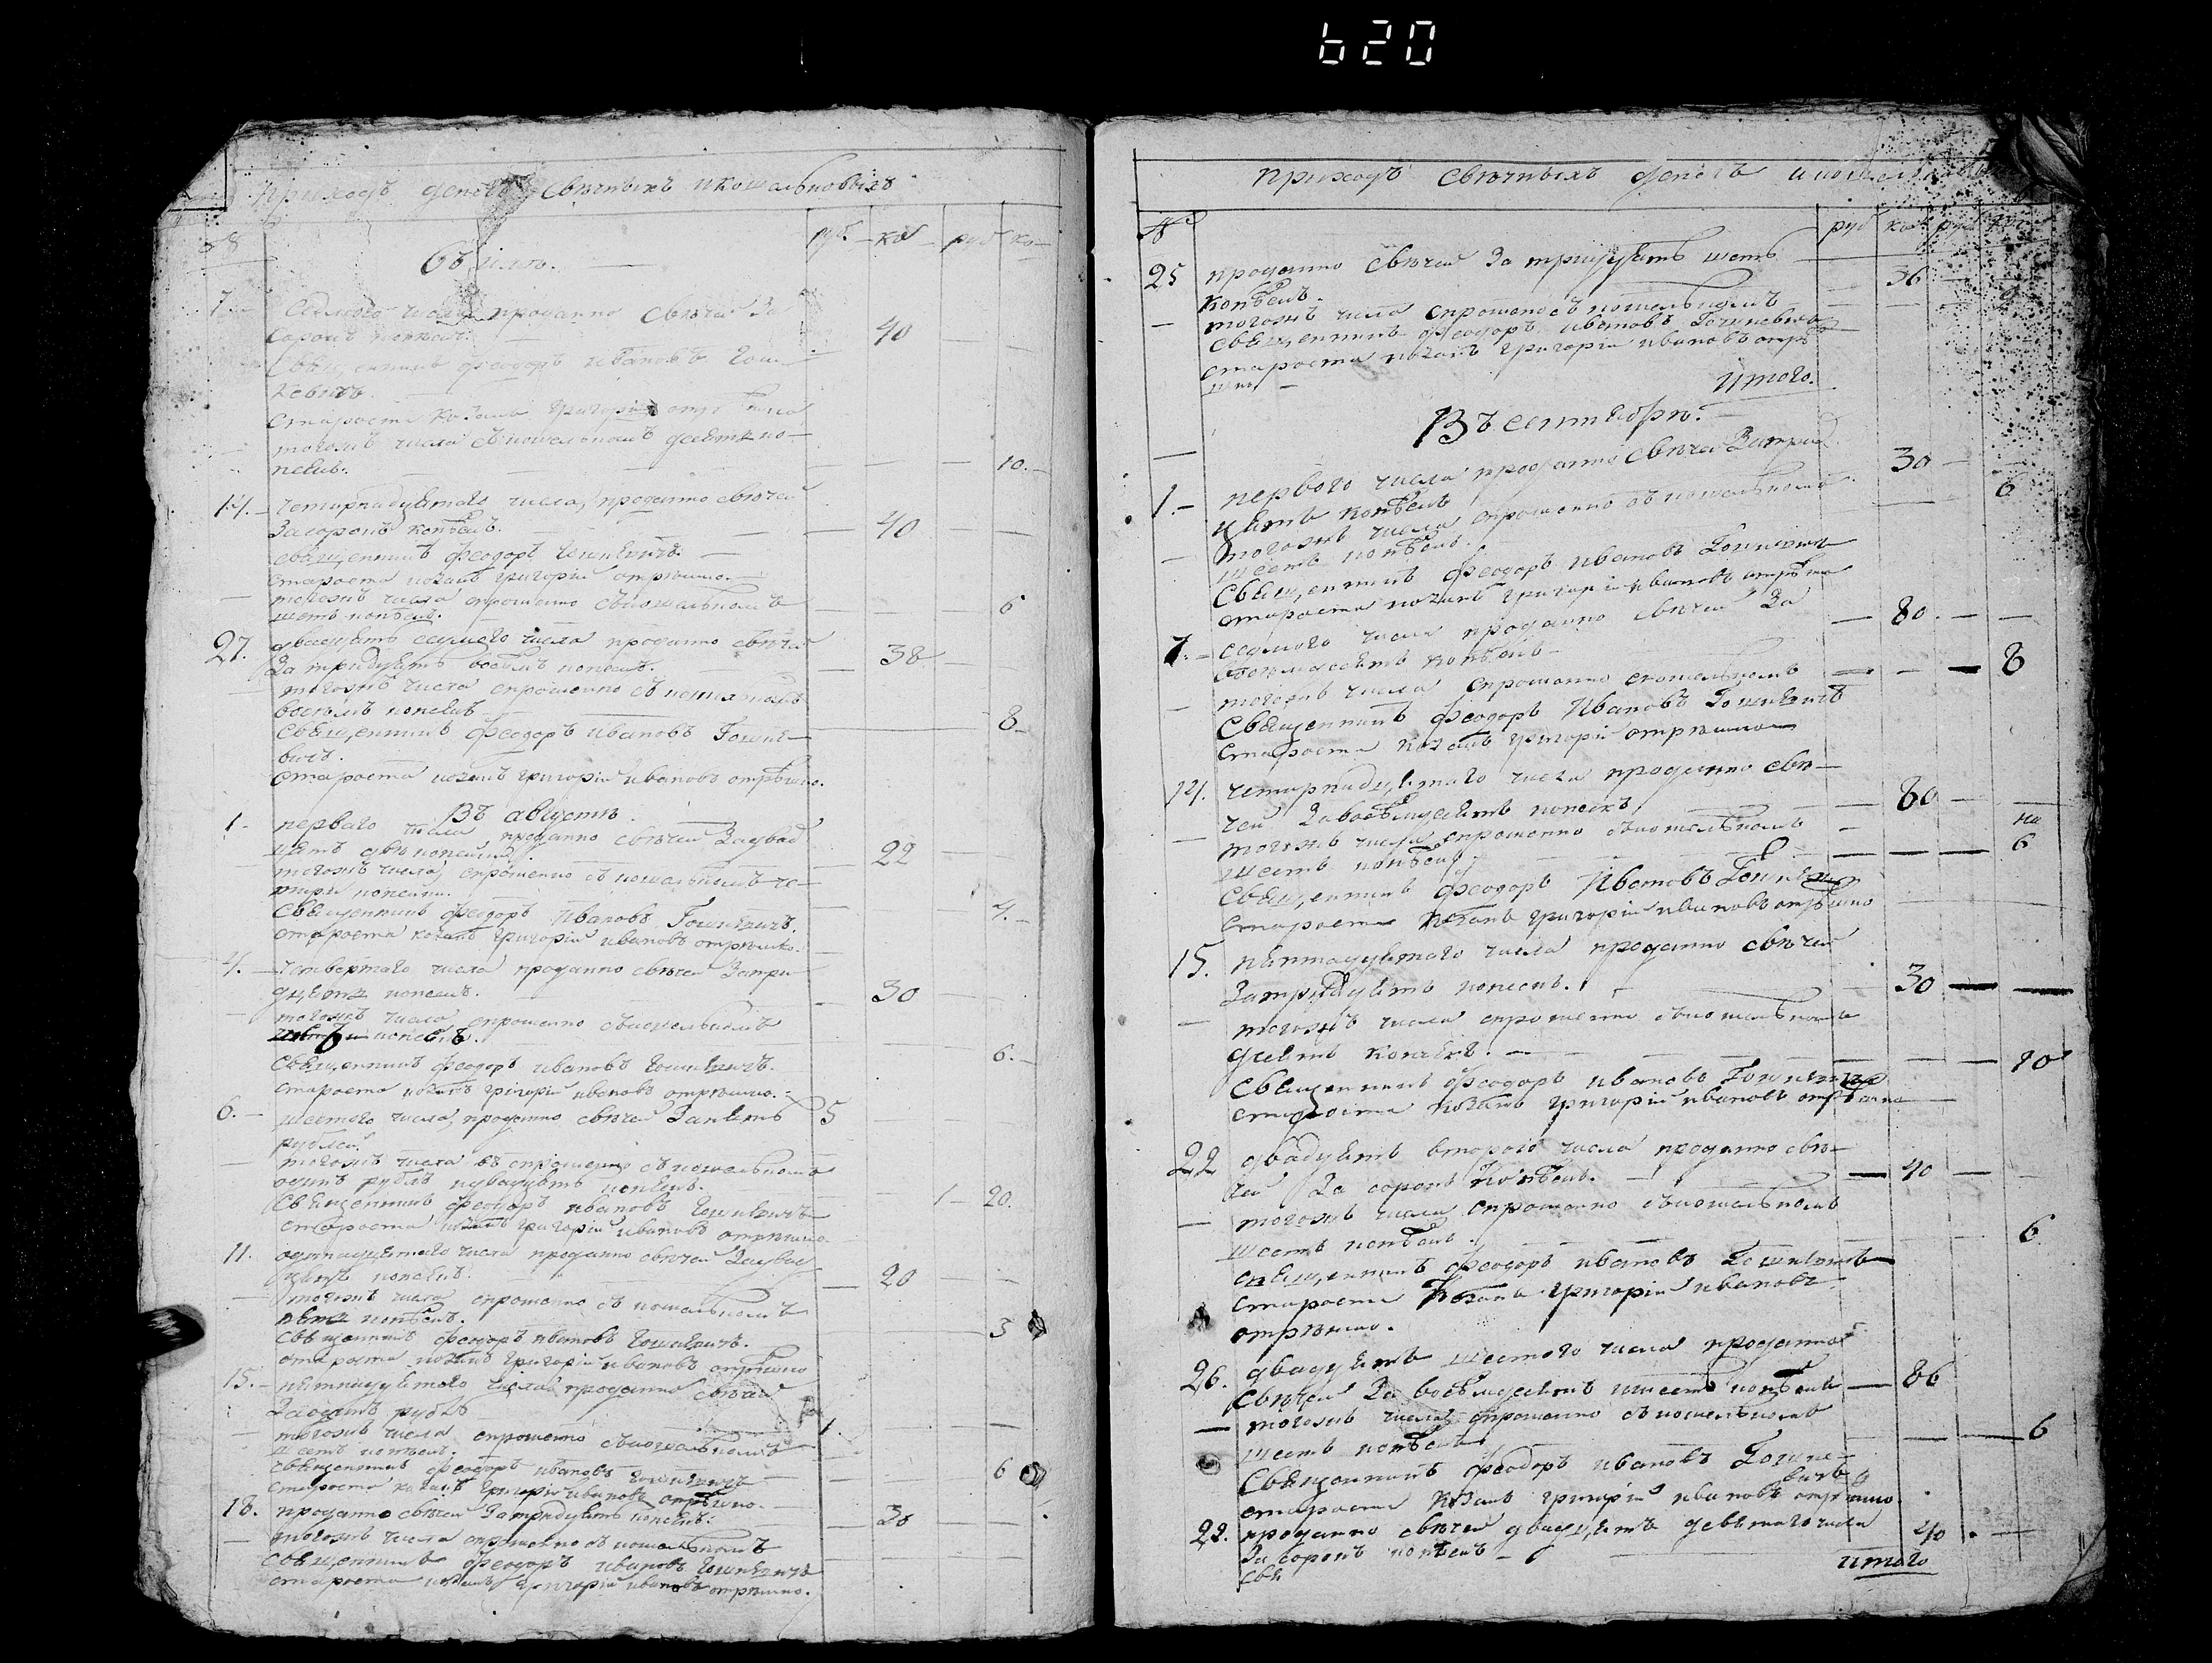 620
приходъ денегъ свѣчныхъ икошельковыхъ
№ руб. ко руб ко
Въ июлѣ.
7. Седмого числа проданно свѣчей за
сорокъ копѣекъ. 40
Священникъ Феодоръ Ивановъ Гош
кевичъ.
староста козакъ григорій
тогожъ числа съкошелькомъ десять ко
пеекъ. 10.
14. четырнадцятого числа, проданно свѣчей
За сорокъ копѣекъ. 40
священникъ Феодоръ Гошкевичъ.
староста козакъ григорій отрѣшко.
тогожъ числа спрошенно съкошелькомъ
шесть копѣекъ. 6
27. двадцять седмого числа проданно свѣчей
За тридцять восемъ копеекъ. 38
тогожъ числа спрошенно съ кошелькомъ
восѣмъ копеекъ 8
Священникъ Феодоръ Ивановъ Гошке
вичъ.
староста козакъ григорій ивановъ отрѣшко.
Въ августѣ.
1. первого числа проданно свѣчей Задвад
цять двѣ копейки. 22
тогожъ числа, спрошенно съ кошелькомъ че
тири копейки. 4.
Священникъ Феодоръ Ивановъ Гошкевичъ.
староста козакъ Григорій ивановъ отрѣшко.
4. четвертого числа проданно свѣчей Затри
дцять копеекъ. 30
тогожъ числа спрошенно съкошелькомъ
6 копеекъ. 6.
Священникъ Феодоръ ивановъ Гошкевичъ.
староста козакъ григорій ивановъ отрѣшко.
6. шестого числа, проданно свѣчей Запять 5
рублей.
тогожъ числа спрошенно съ кошелькомъ
одинъ рубль идвадцять копеекъ. 1 20.
Священникъ Феодоръ ивановъ Гошкевичъ
староста козакъ григорій ивановъ отрѣшко.
11. одинадцятого числа проданно свѣчей Задвад
цять копеекъ. 20
тогожъ числа спрошенно съ кошелькомъ
копѣекъ.
Священникъ Феодоръ ивановъ Гошкевичъ.
староста козакъ григорій ивановъ отрѣшко
15. пятнадцятого числа проданно свѣчей
Заодинъ рубль 1.
тогожъ числа спрошенно съкошелькомъ
шесть копѣекъ. 6
Священникъ Феодоръ ивановъ Гошкевичъ
староста козакъ григорій ивановъ отрѣшко.
18. проданно свѣчей Затридцять копеекъ. 30
тогожъ числа спрошенно съ кошелькомъ
Священникъ Феодоръ ивановъ Гошкевичъ
староста козакъ григорій ивановъ отрѣшко.
приходъ свѣчныхъ денегъ
№ руб коп руб коп
25 проданно свѣчей За тридцять шесть 36
копѣекъ.
тогожъ числа спрошено съ кошелькомъ
священникъ Феодоръ ивановъ Гошкевичъ
староста козакъ григорій ивановъ отрѣ
шко
итого.
Въ сентябрѣ.
1. первого числа проданно свѣчей Затрид 30
цять копѣекъ
тогожъ числа спрошенно съ кошелькомъ 6
шесть копѣекъ.
Священникъ Феодоръ ивановъ Гошкевичъ
староста козакъ григорій ивановъ отрѣшко
7. седмого числа проданно свѣчей За 80.
восемдесять копѣекъ
тогожъ числа спрошенно скошелькомъ 8
Священникъ Феодоръ Ивановъ Гошкевичъ
староста козакъ григорій отрѣшко
14. четырнадцятого числа проданно свѣ
чей Завосѣмдесятъ копеекъ 80
тогожъ числа спрошенно съкошелькомъ на
шесть копѣекъ 6
Священникъ Феодоръ Ивановъ Гошкевичъ
староста козакъ григорій ивановъ отрѣшко
15. пятнадцятого числа проданно свѣчей
Затридцять копеекъ. 30
тогожъ числа спрошенно съкошелькомъ
десять копѣекъ. 10
Священникъ Феодоръ ивановъ Гошкевичъ
староста козакъ григорій ивановъ отрѣшко
22 двадцять второго числа проданно свѣ
чей За сорокъ копѣекъ. 40
тогожъ числа спрошенно съкошелькомъ
шесть копѣекъ. 6
священникъ Феодоръ ивановъ Гошкевичъ
староста козакъ григорій ивановъ
отрѣшко.
26. двадцять шестого числа проданно
свѣчей За восѣмдесять ишесть копѣекъ 86
тогожъ числа спрошенно съкошелькомъ
шесть копѣекъ 6
Священникъ Феодоръ ивановъ Гошке
вичъ
староста козакъ григорій ивановъ отрѣшко.
проданно свѣчей двадцять девятого числа 40
За сорокъ копѣекъ
свя
итого